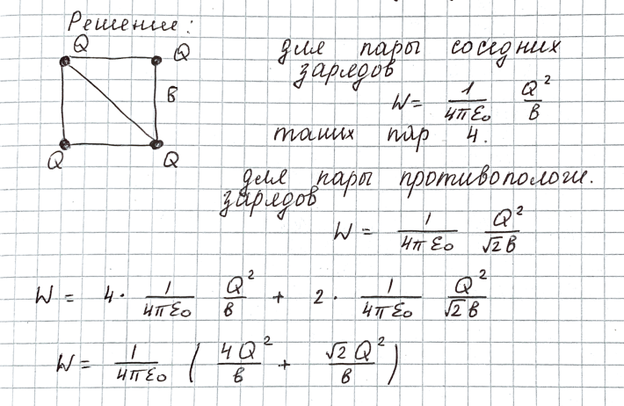 Решение:
Q Q
для пары соседних
зарядов
W = 1/(4πε₀) Q²/в
в
таких пар 4.
Q Q
для пары противополож.
зарядов
W = 1/(4πε₀) Q²/(√2в)
W = 4 · 1/(4πε₀) Q²/в + 2 · 1/(4πε₀) Q²/(√2в)
W = 1/(4πε₀) (4Q²/в + √2Q²/в)